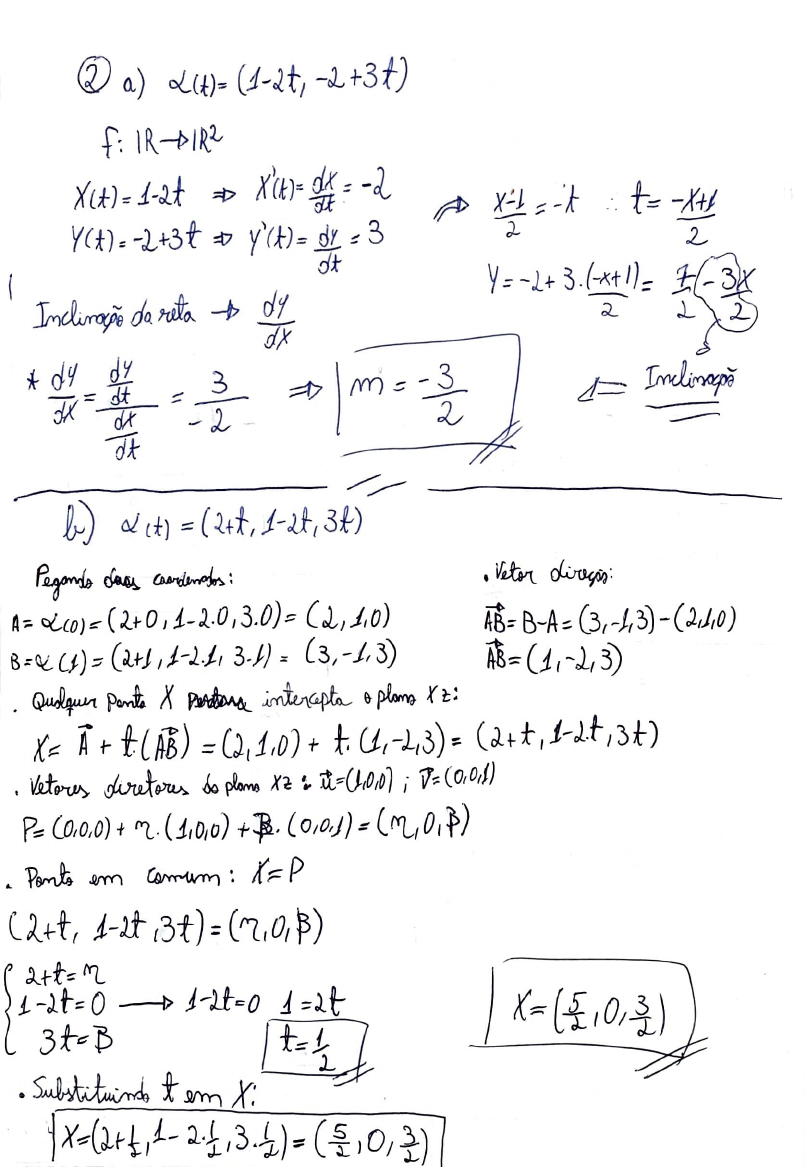 ② a) α(t)= (1-2t, -2+3t)
f: IR→IR²
X(t)= 1-2t ⇒ X'(t)= dx/dt = -2
Y(t)= -2+3t ⇒ y'(t)= dy/dt = 3
⇒ x-1/2 = -t ∴ t= -x+1/2
Y= -2+3.(-x+1)/2 = 7/2 - 3x/2
Inclinação da reta → dy/dx
* dy/dx = dy/dt / dx/dt = 3/-2 ⇒ m = -3/2
⇐ Inclinação
b) α(t) = (2+t, 1-2t, 3t)
Pegando duas coordenadas:
A= α(0)= (2+0, 1-2.0, 3.0)= (2,1,0)
B=α(1) = (2+1, 1-2.1, 3.1) = (3,-1,3)
. Vetor direção:
AB= B-A = (3,-1,3)-(2,1,0)
AB= (1,-2,3)
. Qualquer ponto X intercepta o plano XZ:
X= A + t.(AB) = (2,1,0) + t. (1,-2,3) = (2+t, 1-2.t, 3t)
. Vetores diretores do plano XZ : u=(1,0,0) ; v=(0,0,1)
P= (0,0,0) + η. (1,0,0) + β. (0,0,1) = (η,0,β)
. Ponto em comum: X=P
(2+t, 1-2t, 3t)=(η,0,β)
2+t=η
1-2t=0 → 1-2t=0 1=2t
3t=β t=1/2
X=(5/2, 0, 3/2)
. Substituindo t em X:
X=(2+1/2, 1-2.1/2, 3.1/2)=(5/2, 0, 3/2)